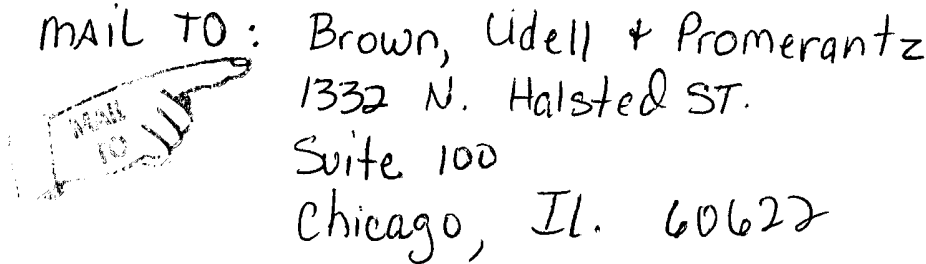 MAIL TO: Brown, Udell & Promerantz
MAIL
TO
1332 N. Halsted ST.
Suite 100
Chicago, Il. 60622